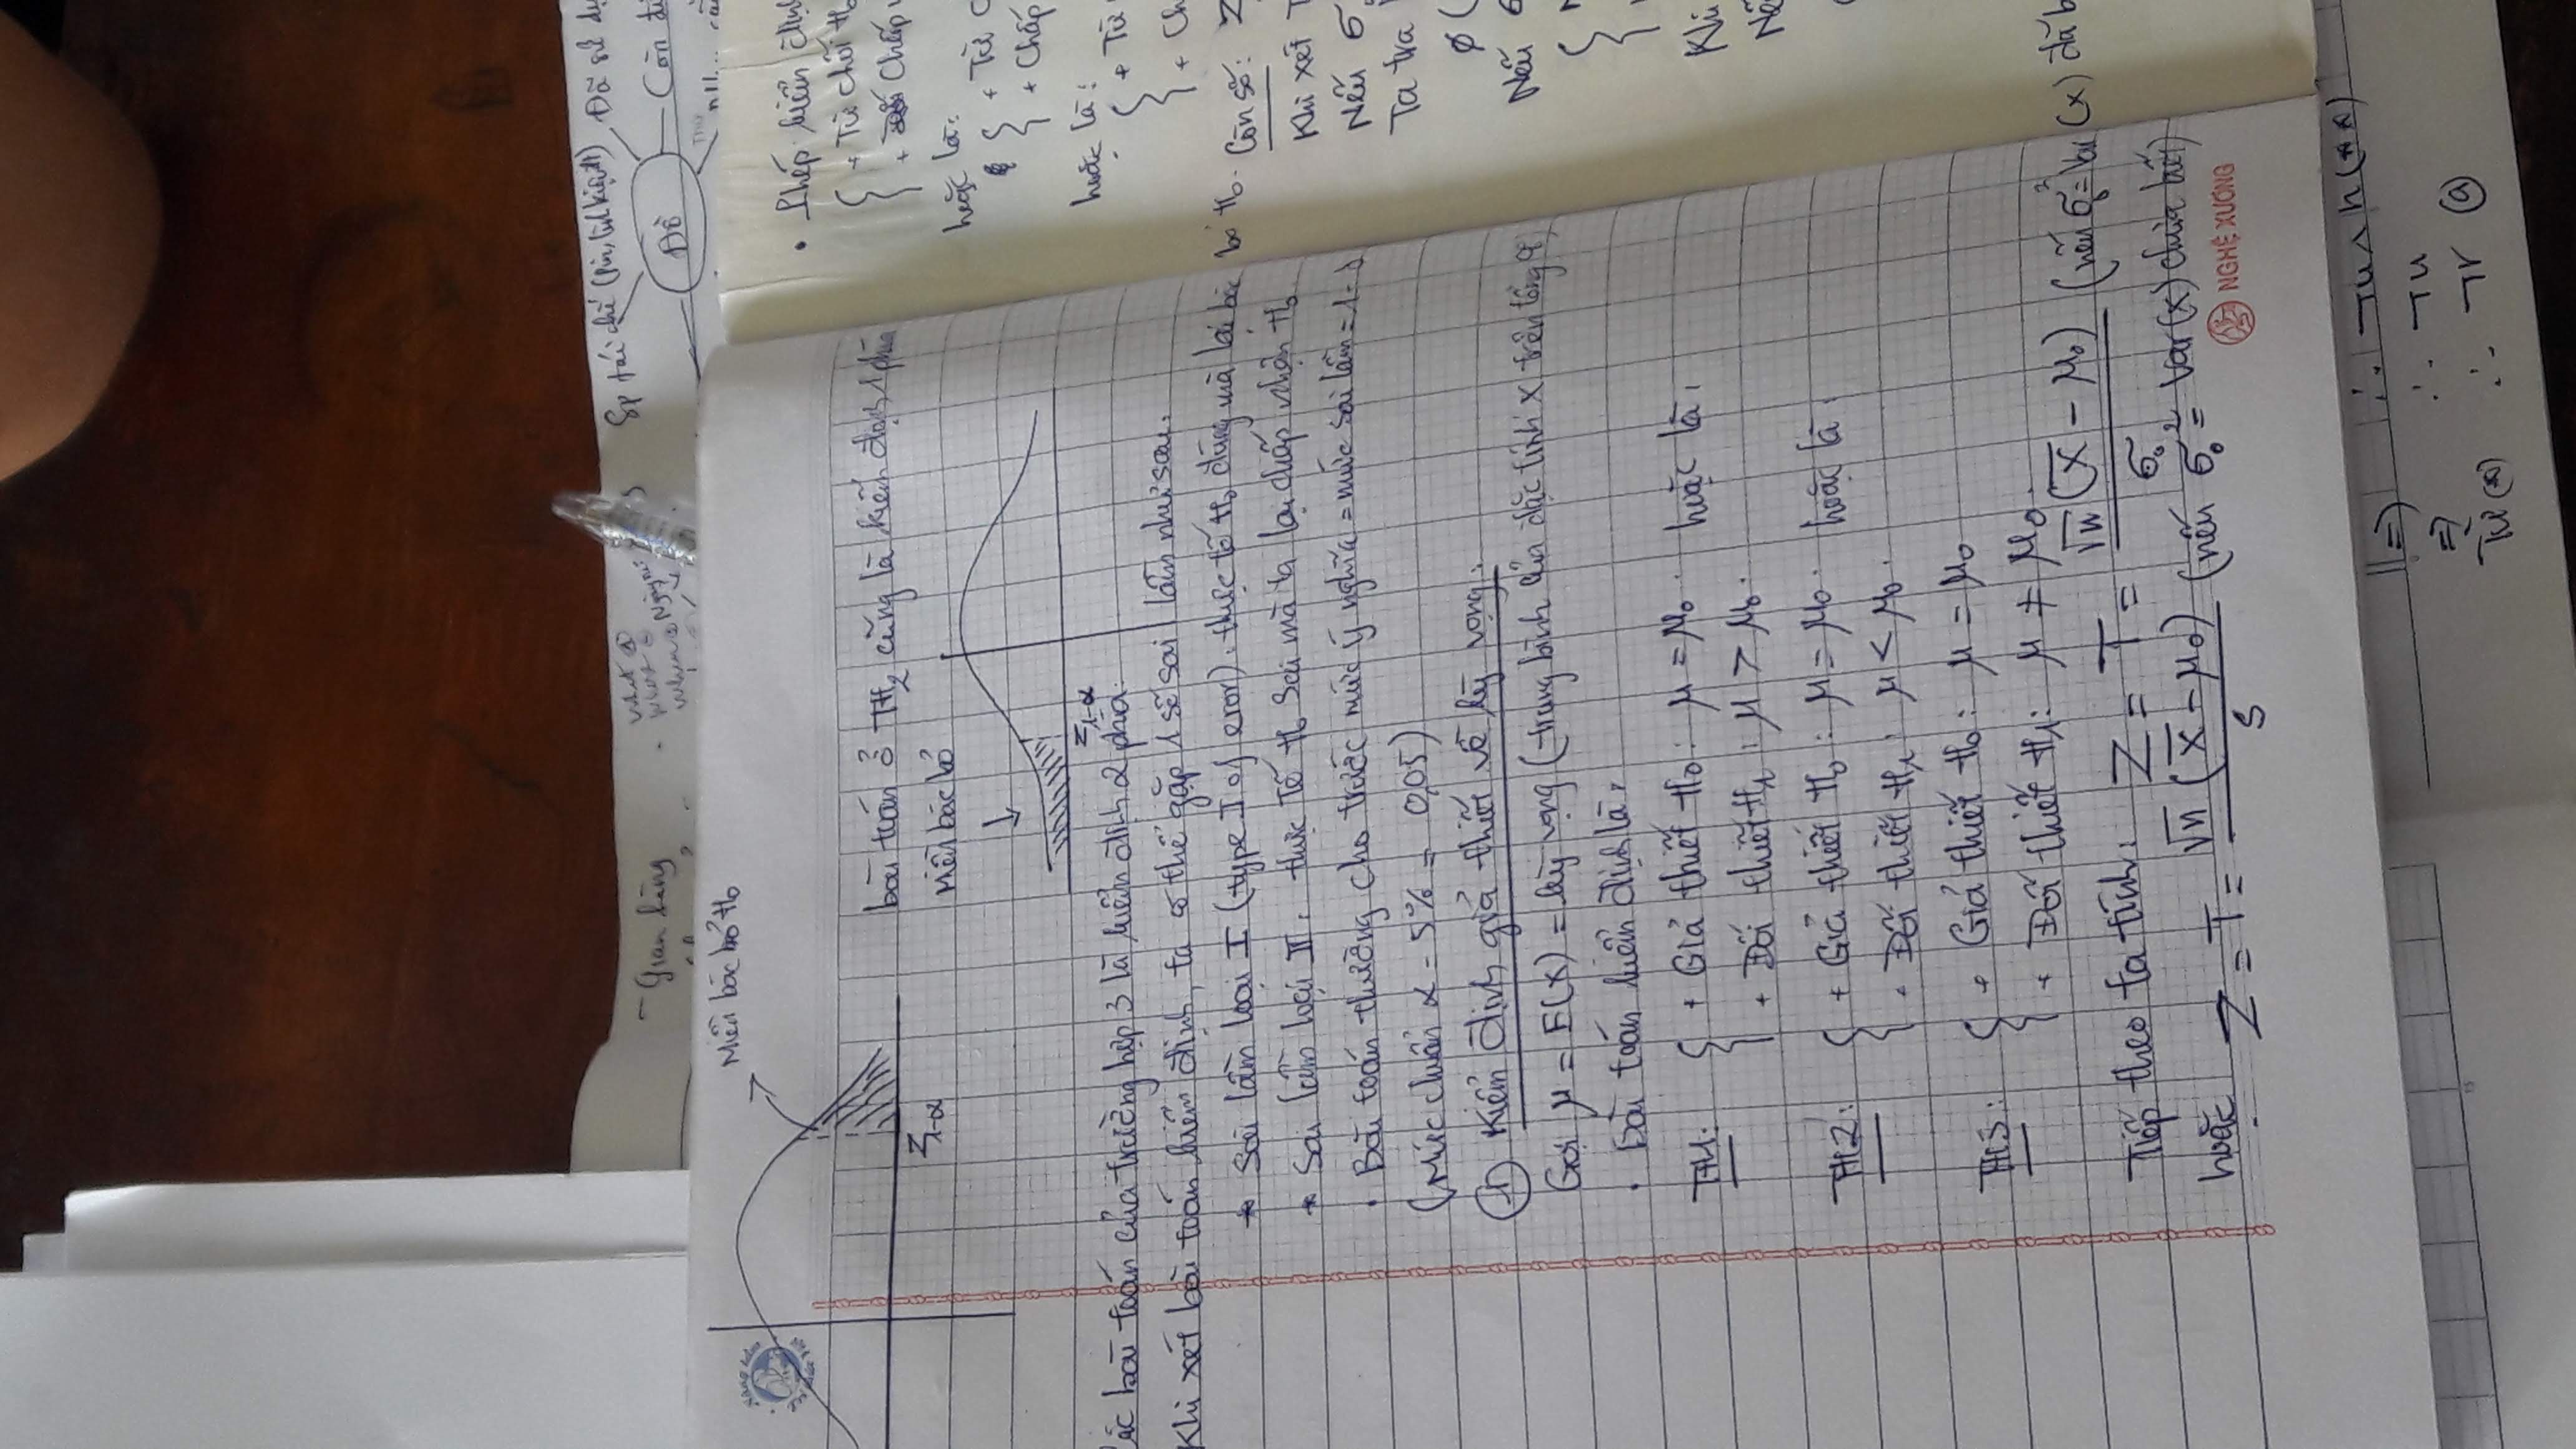 - Gian hàng
What
Where
When
Ngày
Sp tái chế (pin, linh kiện)
Đã sử dụ
Đồ
Còn
Miền bác bỏ H₀
Z₁₋α
bài toán ở TH₂ cũng là kiểm định 1 phía
Miền bác bỏ
Z₁₋α
Các bài toán của trường hợp 3 là kiểm định 2 phía.
Khi xét bài toán kiểm định, ta có thể gặp 1 số sai lầm như sau.
* Sai lầm loại I (type I of eror): thực tế H₀ đúng mà lại bác bỏ H₀.
* Sai lầm loại II: thực tế H₀ sai mà ta lại chấp nhận H₀
• Bài toán thường cho trước mức ý nghĩa = mức sai lầm = 1 -
(Mức chuẩn α = 5% = 0,05)
① Kiểm định giả thiết về kỳ vọng:
Gọi μ = E(X) = kỳ vọng (trung bình của đặc tính X trên tổng
• Bài toán kiểm định là:
TH1: { + Giả thiết H₀: μ = μ₀. hoặc là:
+ Đối thiết H₁: μ > μ₀.
TH2: { + Giả thiết H₀: μ = μ₀. hoặc là:
+ Đối thiết H₁: μ < μ₀.
TH3: { + Giả thiết H₀: μ = μ₀
+ Đối thiết H₁: μ ≠ μ₀.
Tiếp theo ta tính: Z = T = √n (X̄ - μ₀) / σ₀ (nếu σ₀² = Var(X) đã b
hoặc Z = T = √n (X̄ - μ₀) / s (nếu σ₀² = Var(X) chưa biết)
NGHỆ XƯƠNG
• Phép kiểm định
{ + Từ chối H₀
+ Chấp
hoặc là:
{ + Từ c
+ Chấp
hoặc là:
{ + Từ
+ Ch
Còn số: Z
Khi xét T
Nếu σ
Ta tra
φ(
Nếu σ
Khi
Nế
|⇒) ∴ ¬u ∧ h (**)
⇒ ∴ ¬u
Từ (*) ∴ ¬r ⓐ